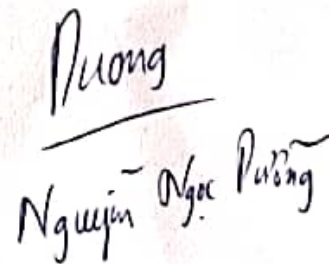 Duong
Nguyễn Ngọc Dưỡng